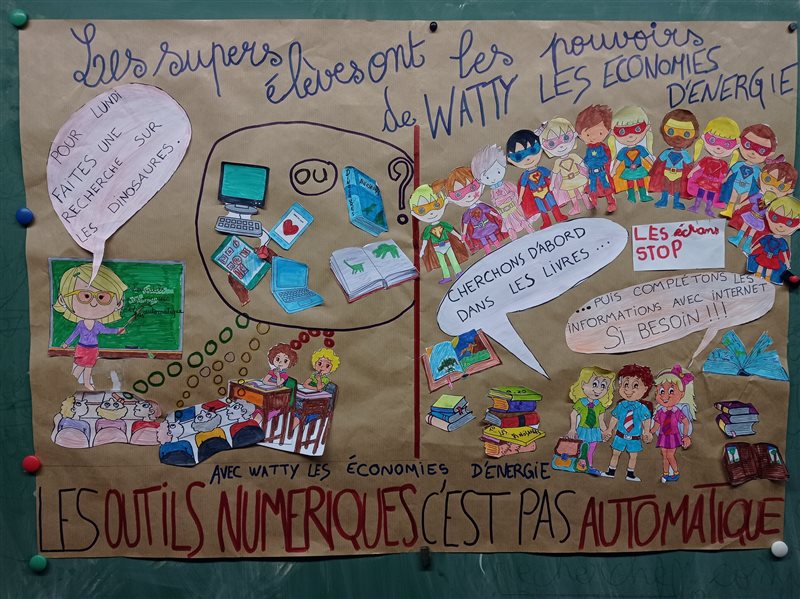 Les supers élèves ont les pouvoirs
de WATTY LES ECONOMIES
D'ENERGIE
POUR LUNDI
FAITES UNE
RECHERCHE SUR
ES DINOSAURES.
OU
?
LES écrans
STOP
CHERCHONS D'ABORD
DANS LES LIVRES...
...PUIS COMPLÉTONS LES
INFORMATIONS AVEC INTERNET
SI BESOIN!!!
AVEC WATTY LES ÉCONOMIES D'ENERGIE
LES OUTILS NUMERIQUES C'EST PAS AUTOMATIQUE